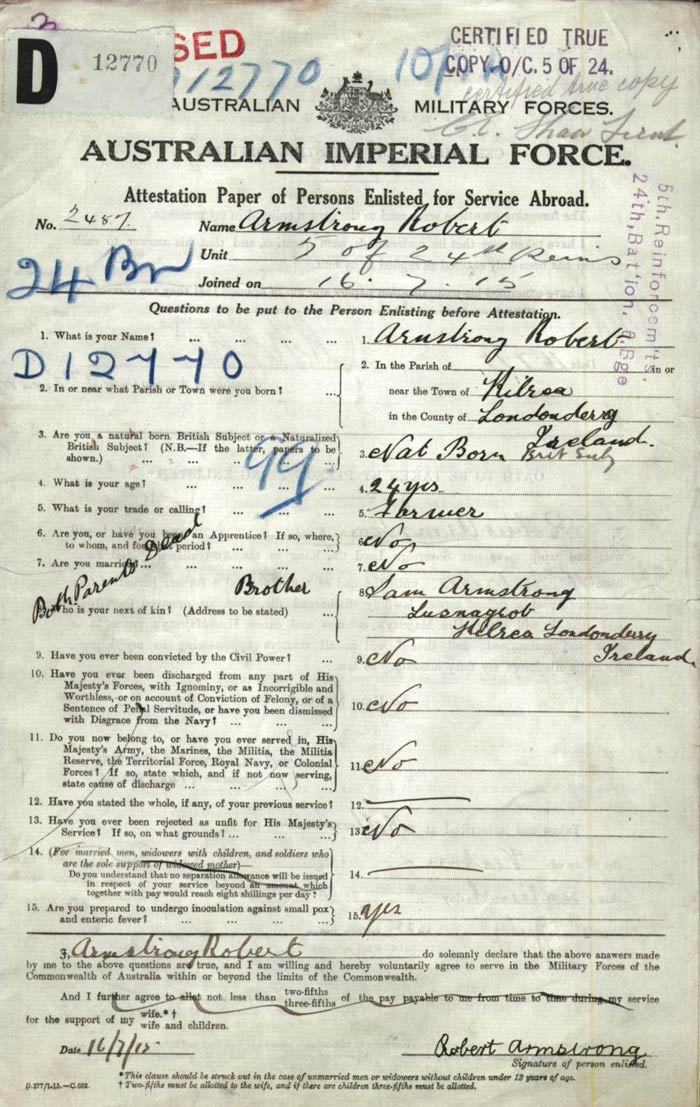 D 12770
SED
CERTIFIED TRUE
COPY O/C. 5 OF 24.
certified true copy
D12770
AUSTRALIAN MILITARY FORCES.
AUSTRALIAN IMPERIAL FORCE.
Attestation Paper of Persons Enlisted for Service Abroad.
5th, Reinforcemts,
24th, Battion.
No. 2487. Name Armstrong Robert
Unit 5 of 24th Reins
Joined on 16. 7. 15
24 Bn
Questions to be put to the Person Enlisting before Attestation.
1. What is your Name? ... ... ... ... 1. Armstrong Robert.
D12770
2. In or near what Parish or Town were you born? ... 2. In the Parish of in or
near the Town of Kilrea
in the County of Londonderry
Ireland.
3. Are you a natural born British Subject or a Naturalized
British Subject? (N.B.—If the latter, papers to be
shown.) ... ... ... ... 3. Nat Born Brit Subj
99
4. What is your age? ... ... ... ... 4. 24 yrs
5. What is your trade or calling? ... ... ... 5. Farmer
6. Are you, or have you been an Apprentice? If so, where,
to whom, and for what period? ... ... ... 6. No
7. Are you married? ... ... ... ... 7. No
Both Parents Dead
Brother
8. Who is your next of kin? (Address to be stated) ... 8. Sam Armstrong
Lusnagrob
Kilrea Londonderry
Ireland.
9. Have you ever been convicted by the Civil Power? ... 9. No
10. Have you ever been discharged from any part of His
Majesty's Forces, with Ignominy, or as Incorrigible and
Worthless, or on account of Conviction of Felony, or of a
Sentence of Penal Servitude, or have you been dismissed
with Disgrace from the Navy? ... ... ... 10. No
11. Do you now belong to, or have you ever served in, His
Majesty's Army, the Marines, the Militia, the Militia
Reserve, the Territorial Force, Royal Navy, or Colonial
Forces? If so, state which, and if not now serving,
state cause of discharge ... ... ... 11. No
12. Have you stated the whole, if any, of your previous service? 12.
13. Have you ever been rejected as unfit for His Majesty's
Service? If so, on what grounds? ... ... ... 13. No
14. (For married men, widowers with children, and soldiers who
are the sole support of widowed mother)—
Do you understand that no separation allowance will be issued
in respect of your service beyond an amount which
together with pay would reach eight shillings per day? 14.
15. Are you prepared to undergo inoculation against small pox
and enteric fever? ... ... ... ... 15. Yes
I, Armstrong Robert do solemnly declare that the above answers made
by me to the above questions are true, and I am willing and hereby voluntarily agree to serve in the Military Forces of the
Commonwealth of Australia within or beyond the limits of the Commonwealth.
And I further agree to allot not less than two-fifths
three-fifths of the pay payable to me from time to time during my service
for the support of my wife.*†
wife and children.
Date 16/7/15 Robert Armstrong
Signature of person enlisted.
*This clause should be struck out in the case of unmarried men or widowers without children under 18 years of age.
† Two-fifths must be allotted to the wife, and if there are children three-fifths must be allotted.
D.377/1.15.—C.663.